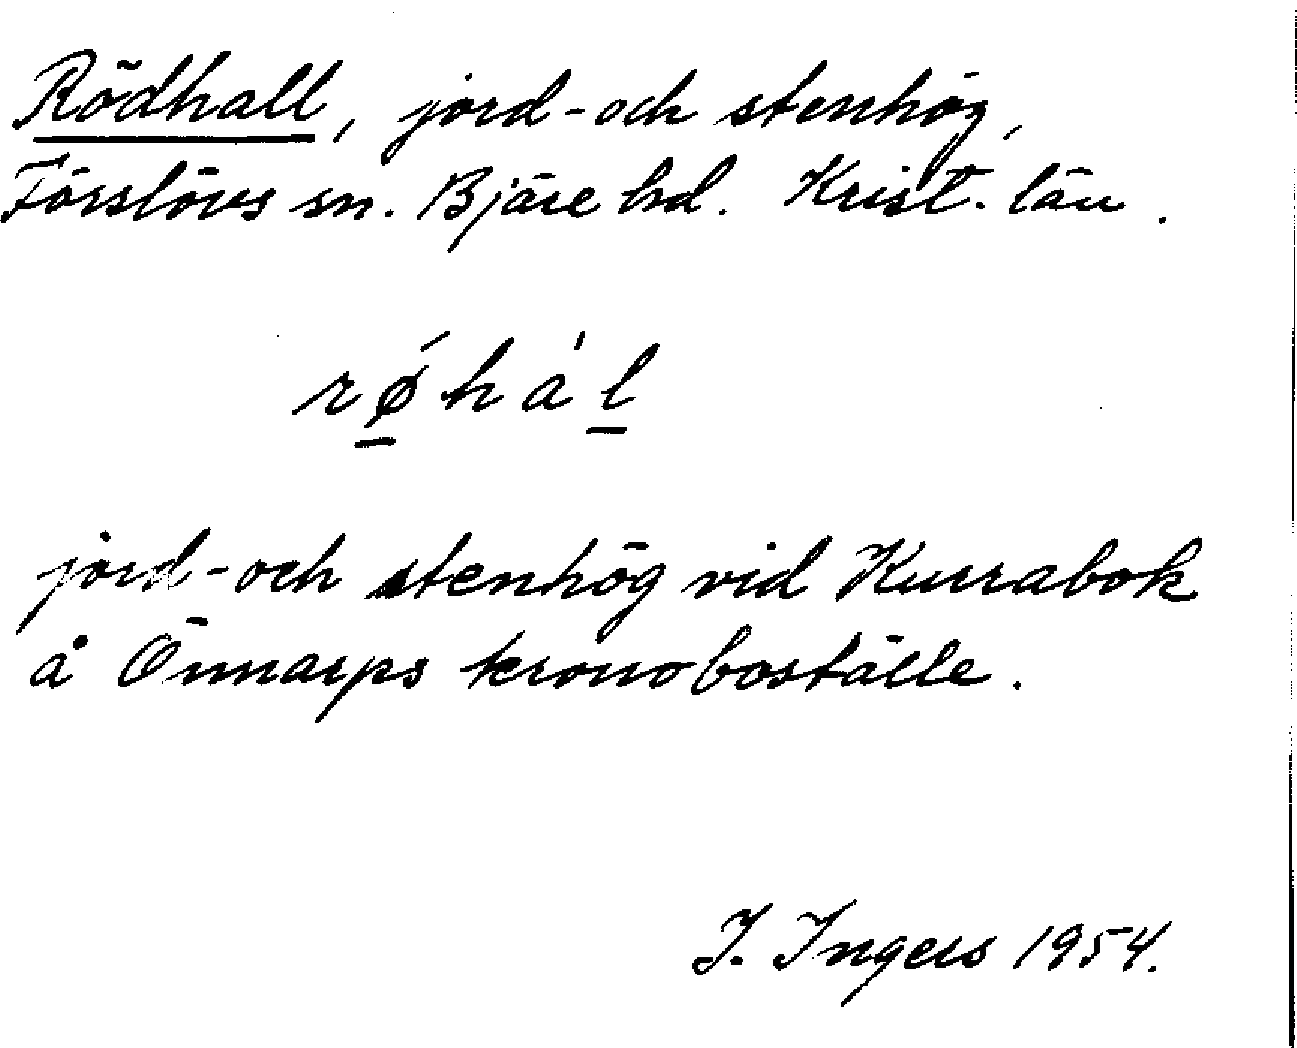 Rödhall, jord- och stenhög,
Förslövs sn. Bjäre hd. Krist. län.
rǿ̱hàḻ
jord- och stenhög vid Kurrabok
å Önnarps kronoboställe.
I. Ingers 1954.